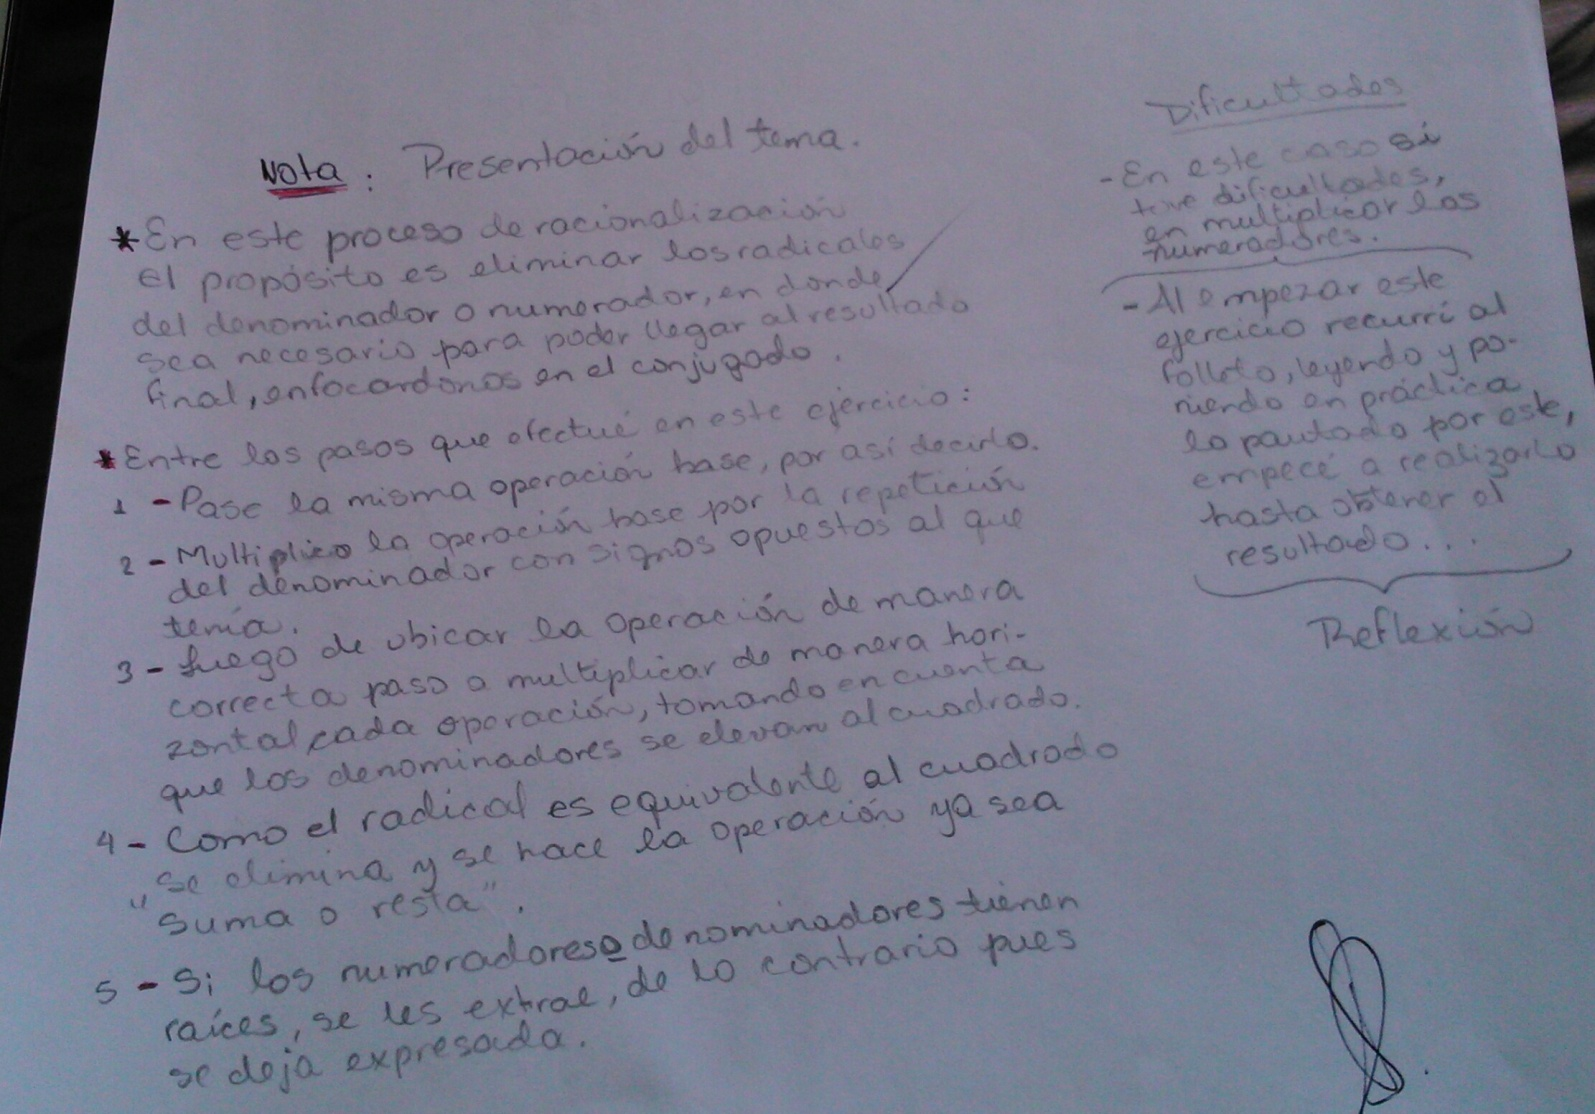 Nota: Presentación del tema.
*En este proceso de racionalización
el propósito es eliminar los radicales
del denominador o numerador, en donde
sea necesario para poder llegar al resultado
final, enfocandonos en el conjugado.
*Entre los pasos que efectué en este ejercicio:
1 - Pase la misma operación base, por así decirlo.
2 - Multiplico la operación base por la repetición
del denominador con signos opuestos al que
tenía.
3 - Luego de ubicar la operación de manera
correcta paso a multiplicar de manera hori-
zontal, cada operación, tomando en cuenta
que los denominadores se elevan al cuadrado.
4 - Como el radical es equivalente al cuadrado
se elimina y se hace la operación ya sea
"suma o resta".
5 - Si los numeradores o denominadores tienen
raíces, se les extrae, de lo contrario pues
se deja expresada.
Dificultades
- En este caso si
tuve dificultades,
en multiplicar los
numeradores.
- Al empezar este
ejercicio recurrí al
folleto, leyendo y po-
niendo en práctica
lo pautado por este,
empecé a realizarlo
hasta obtener el
resultado...
Reflexión